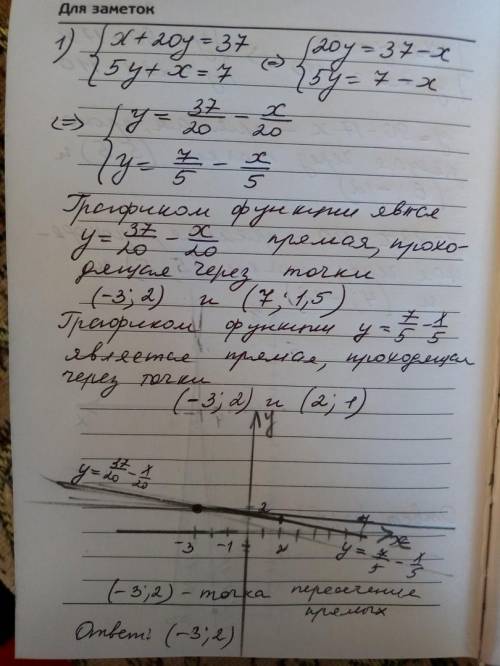 Для заметок
1) { x + 20y = 37 <=> { 20y = 37 - x
{ 5y + x = 7 { 5y = 7 - x
<=> { y = 37/20 - x/20
{ y = 7/5 - x/5
Графиком функции явтся
y = 37/20 - x/20 прямая, прохо-
дящая через точки
(-3; 2) и (7; 1,5)
Графиком функции y = 7/5 - x/5
является прямая, проходящая
через точки
(-3; 2) и (2; 1)
y
y = 37/20 - x/20
2
-3 -1 2 7 x
y = 7/5 - x/5
(-3; 2) - точка пересечение
прямых
Ответ: (-3; 2)